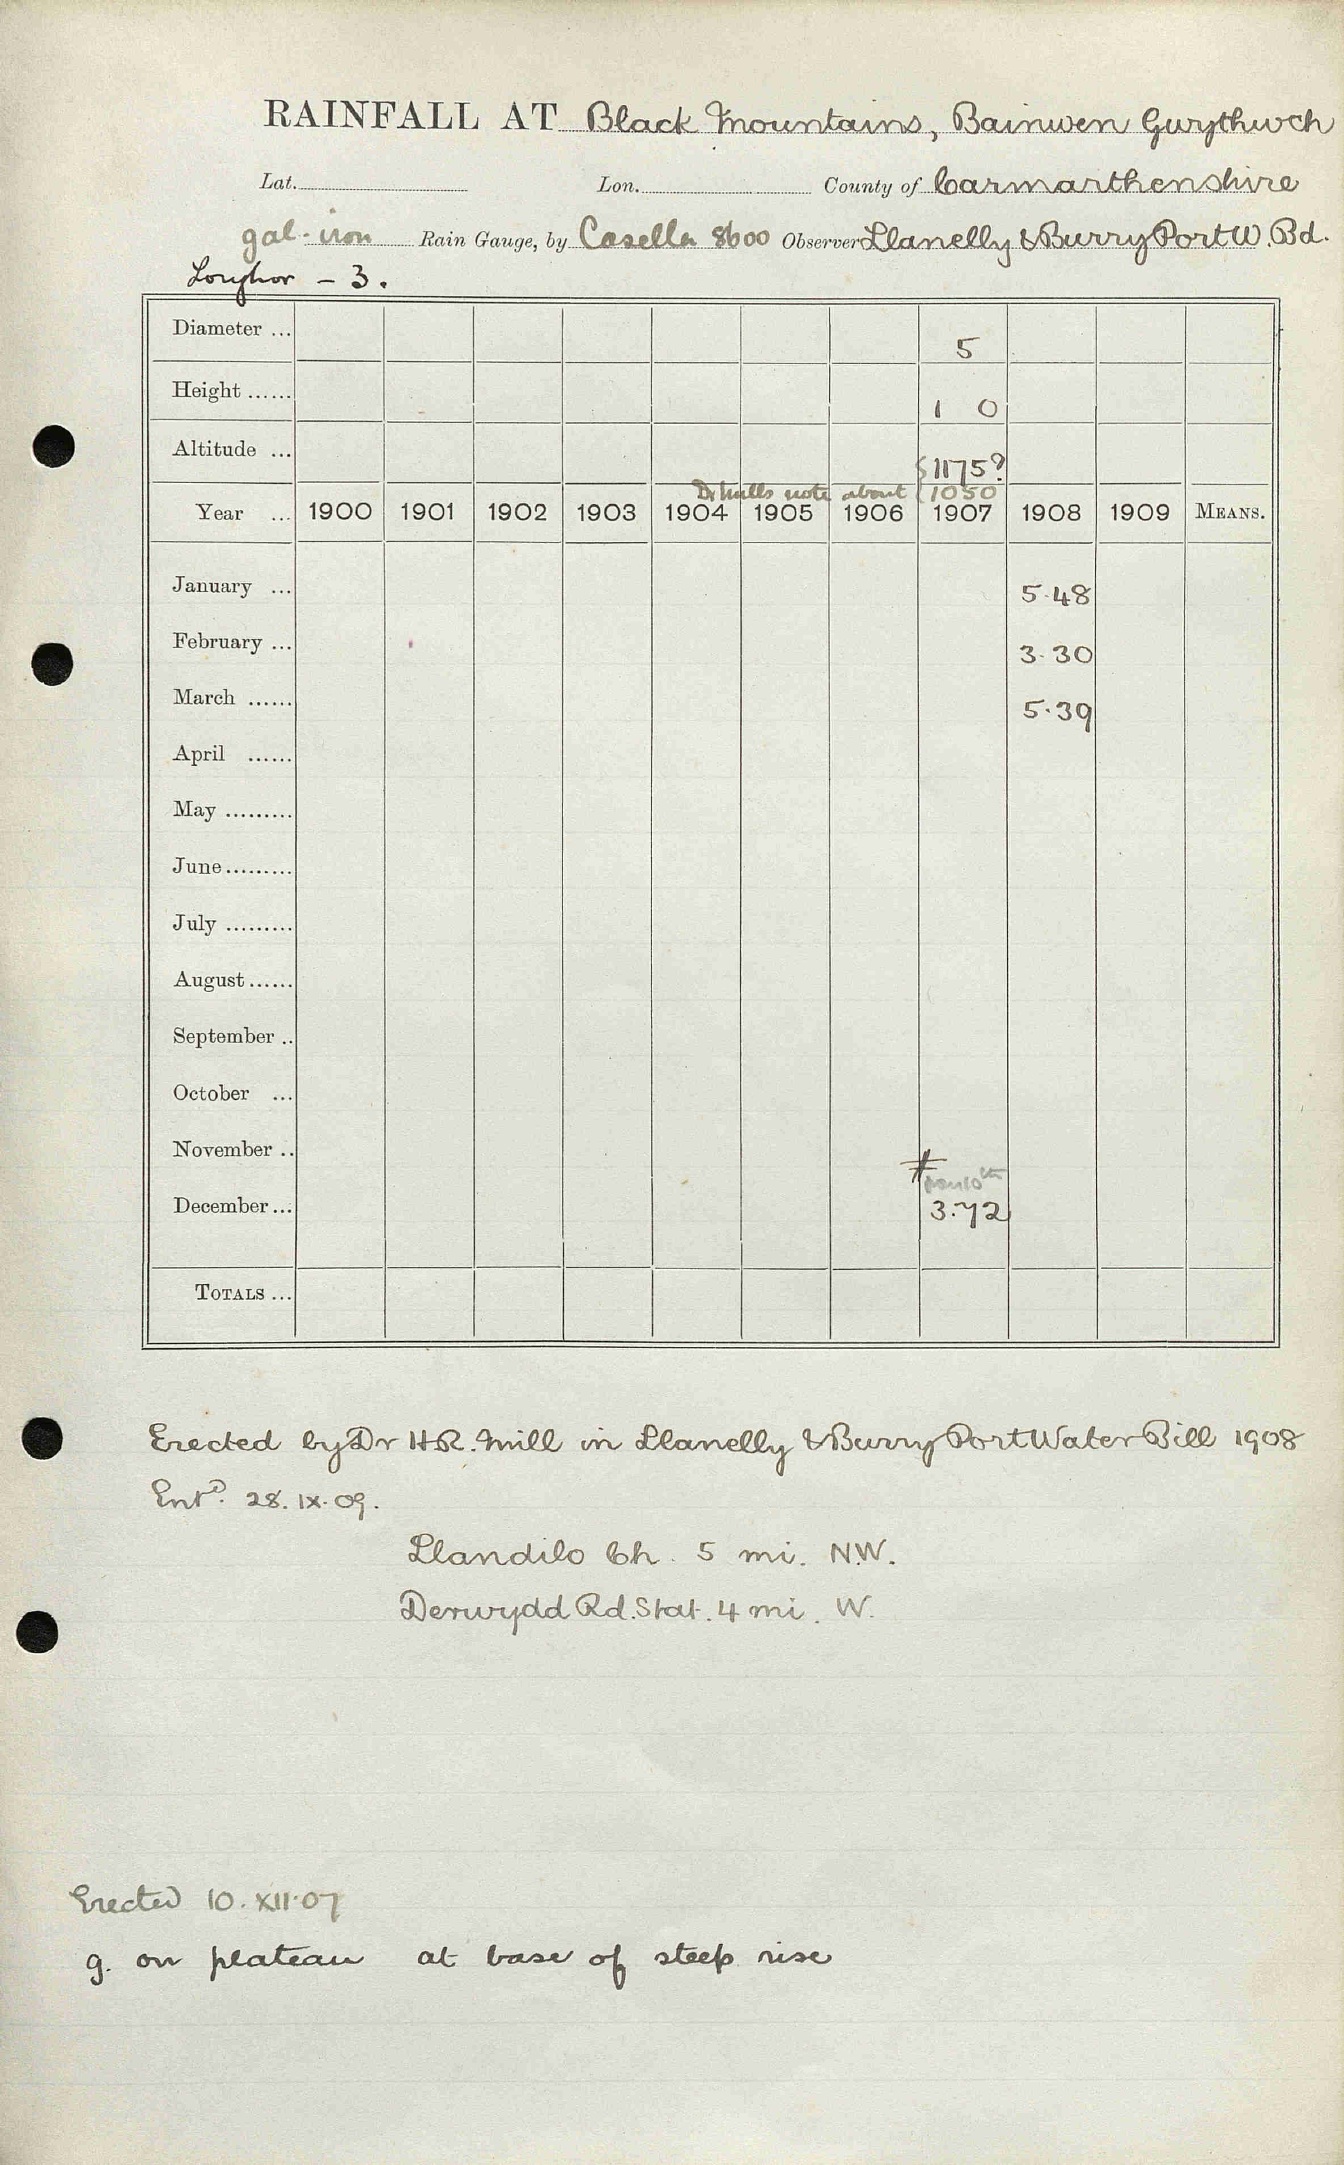 RAINFALL AT Black Mountains, Bainwen Gwythwch
Lat. Lon. County of Carmarthenshire
gal-iron Rain Gauge, by Casella 8600 Observer Llanelly & Burry Port W. Bd.
Loughor - 3.
Diameter ... 5
Height ...... 1 0
Altitude ... {1175?
Dr Mills note about {1050
Year ... 1900 1901 1902 1903 1904 1905 1906 1907 1908 1909 MEANS.
January ... 5.48
February ... 3.30
March ...... 5.39
April ......
May .........
June.........
July .........
August......
September ..
October ...
November ..
# from 10th
December... 3.72
TOTALS ...
Erected by Dr H.R. Mill in Llanelly & Burry Port Water Bill 1908
Entd. 28.IX.09.
Llandilo Ch. 5 mi. N.W.
Derwydd Rd. Stat. 4 mi. W.
Erected 10.XII.07
g. on plateau at base of steep rise